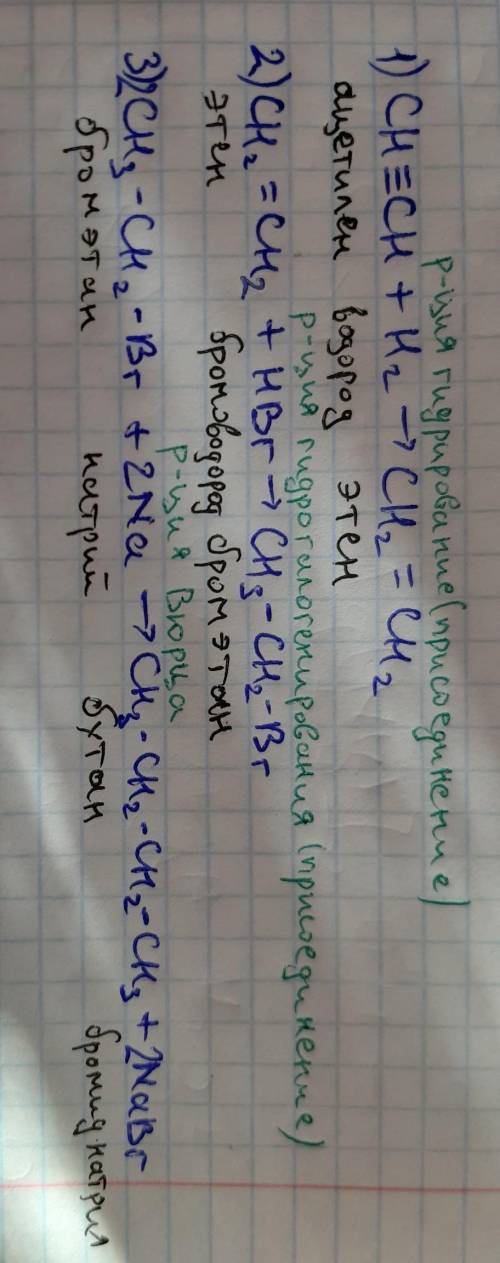 р-ция гидрирование (присоединение)
1) CH≡CH + H₂ → CH₂=CH₂
ацетилен водород этен
р-ция гидрогалогенирования (присоединение)
2) CH₂=CH₂ + HBr → CH₃-CH₂-Br
этен бромоводород бромэтан
р-ция Вюрца
3) 2CH₃-CH₂-Br + 2Na → CH₃-CH₂-CH₂-CH₃ + 2NaBr
бромэтан натрий бутан бромид натрия